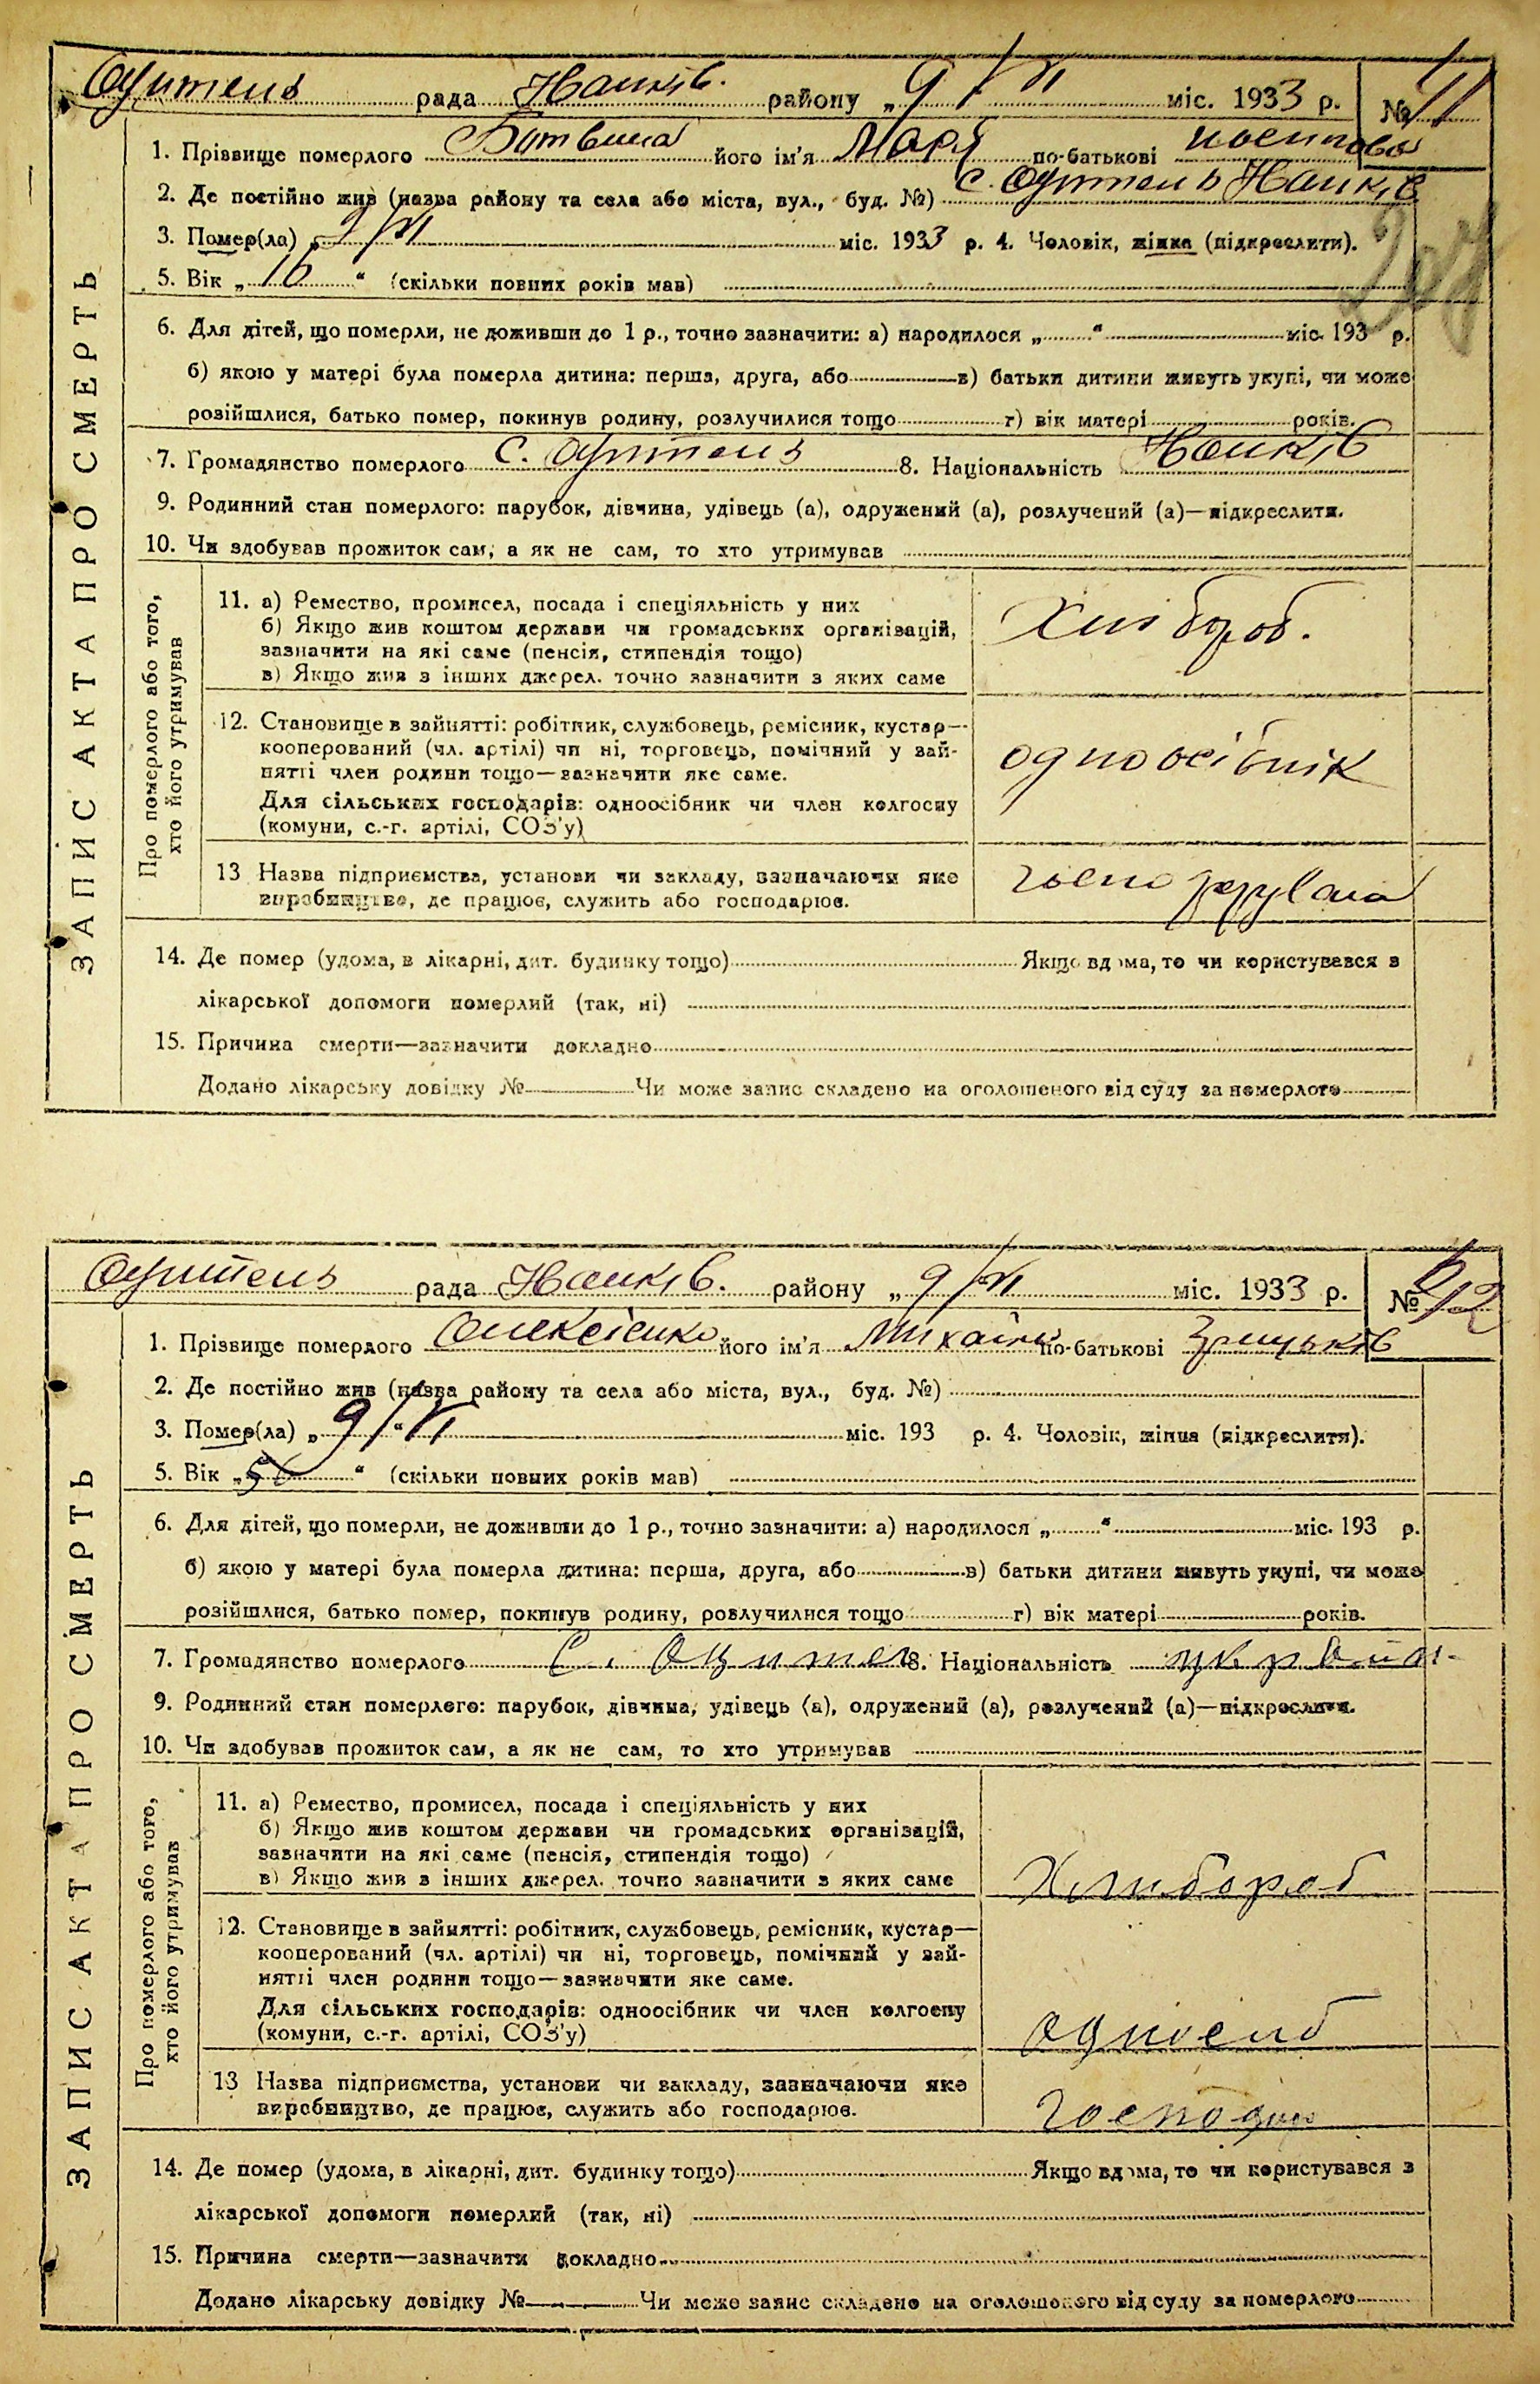 Оритень рада Іваньків. району „ 9 / VI міс. 1933 р. № 11
1. Прізвище померлого Ботвина його ім'я Марія по-батькові
2. Де постійно жив (назва району та села або міста, вул., буд. №) с. Оритень Іваньків
3. Помер(ла) „ 9/VI міс. 1933 р. 4. Чоловік, жінка (підкреслити).
5. Вік „ 16 “ (скільки повних років мав)
6. Для дітей, що померли, не доживши до 1 р., точно зазначити: а) народилося „ “ міс. 193 р.
б) якою у матері була померла дитина: перша, друга, або в) батьки дитини живуть укупі, чи може
розійшлися, батько помер, покинув родину, розлучилися тощо г) вік матері років.
7. Громадянство померлого с. Оритень 8. Національність Іваньків
9. Родинний стан померлого: парубок, дівчина, удівець (а), одружений (а), розлучений (а)—підкреслити.
10. Чи здобував прожиток сам, а як не сам, то хто утримував
ЗАПИС АКТА ПРО СМЕРТЬ
Про померлого або того,
хто його утримував
11. а) Ремество, промисел, посада і спеціяльність у них
б) Якщо жив коштом держави чи громадських організацій,
зазначити на які саме (пенсія, стипендія тощо)
в) Якщо жив з інших джерел. точно зазначити з яких саме
Хлібороб.
12. Становище в зайнятті: робітник, службовець, ремісник, кустар—
кооперований (чл. артілі) чи ні, торговець, помічний у зай-
нятті член родини тощо—зазначити яке саме.
Для сільських господарів: одноосібник чи член колгоспу
(комуни, с.-г. артілі, СОЗ'у)
одноосібнік
13 Назва підприємства, установи чи закладу, зазначаючи яке
виробництво, де працює, служить або господарює.
14. Де помер (удома, в лікарні, дит. будинку тощо) Якщо вдома, то чи користувався з
лікарської допомоги померлий (так, ні)
15. Причина смерти—зазначити докладно
Додано лікарську довідку № Чи може запис складено на оголошеного від суду за померлого
Оритень рада Іваньків. району „ 9/VI міс. 1933 р. № 12
1. Прізвище померлого Олексієнко його ім'я Михайло по-батькові
2. Де постійно жив (назва району та села або міста, вул., буд. №)
3. Помер(ла) „ 9/VI міс. 193 р. 4. Чоловік, жінка (підкреслити).
5. Вік „ 56 “ (скільки повних років мав)
6. Для дітей, що померли, не доживши до 1 р., точно зазначити: а) народилося „ “ міс. 193 р.
б) якою у матері була померла дитина: перша, друга, або в) батьки дитини живуть укупі, чи може
розійшлися, батько помер, покинув родину, розлучилися тощо г) вік матері років.
7. Громадянство померлого с. Оритен 8. Національність україн.
9. Родинний стан померлого: парубок, дівчина, удівець (а), одружений (а), розлучений (а)—підкреслити.
10. Чи здобував прожиток сам, а як не сам, то хто утримував
ЗАПИС АКТА ПРО СМЕРТЬ
Про померлого або того,
хто його утримував
11. а) Ремество, промисел, посада і спеціяльність у них
б) Якщо жив коштом держави чи громадських організацій,
зазначити на які саме (пенсія, стипендія тощо)
в) Якщо жив з інших джерел. точно зазначити з яких саме
Хлибороб
12. Становище в зайнятті: робітник, службовець, ремісник, кустар—
кооперований (чл. артілі) чи ні, торговець, помічний у зай-
нятті член родини тощо—зазначити яке саме.
Для сільських господарів: одноосібник чи член колгоспу
(комуни, с.-г. артілі, СОЗ'у)
13 Назва підприємства, установи чи закладу, зазначаючи яке
виробництво, де працює, служить або господарює.
14. Де помер (удома, в лікарні, дит. будинку тощо) Якщо вдома, то чи користувався з
лікарської допомоги померлий (так, ні)
15. Причина смерти—зазначити докладно
Додано лікарську довідку № Чи може запис складено на оголошеного від суду за померлого